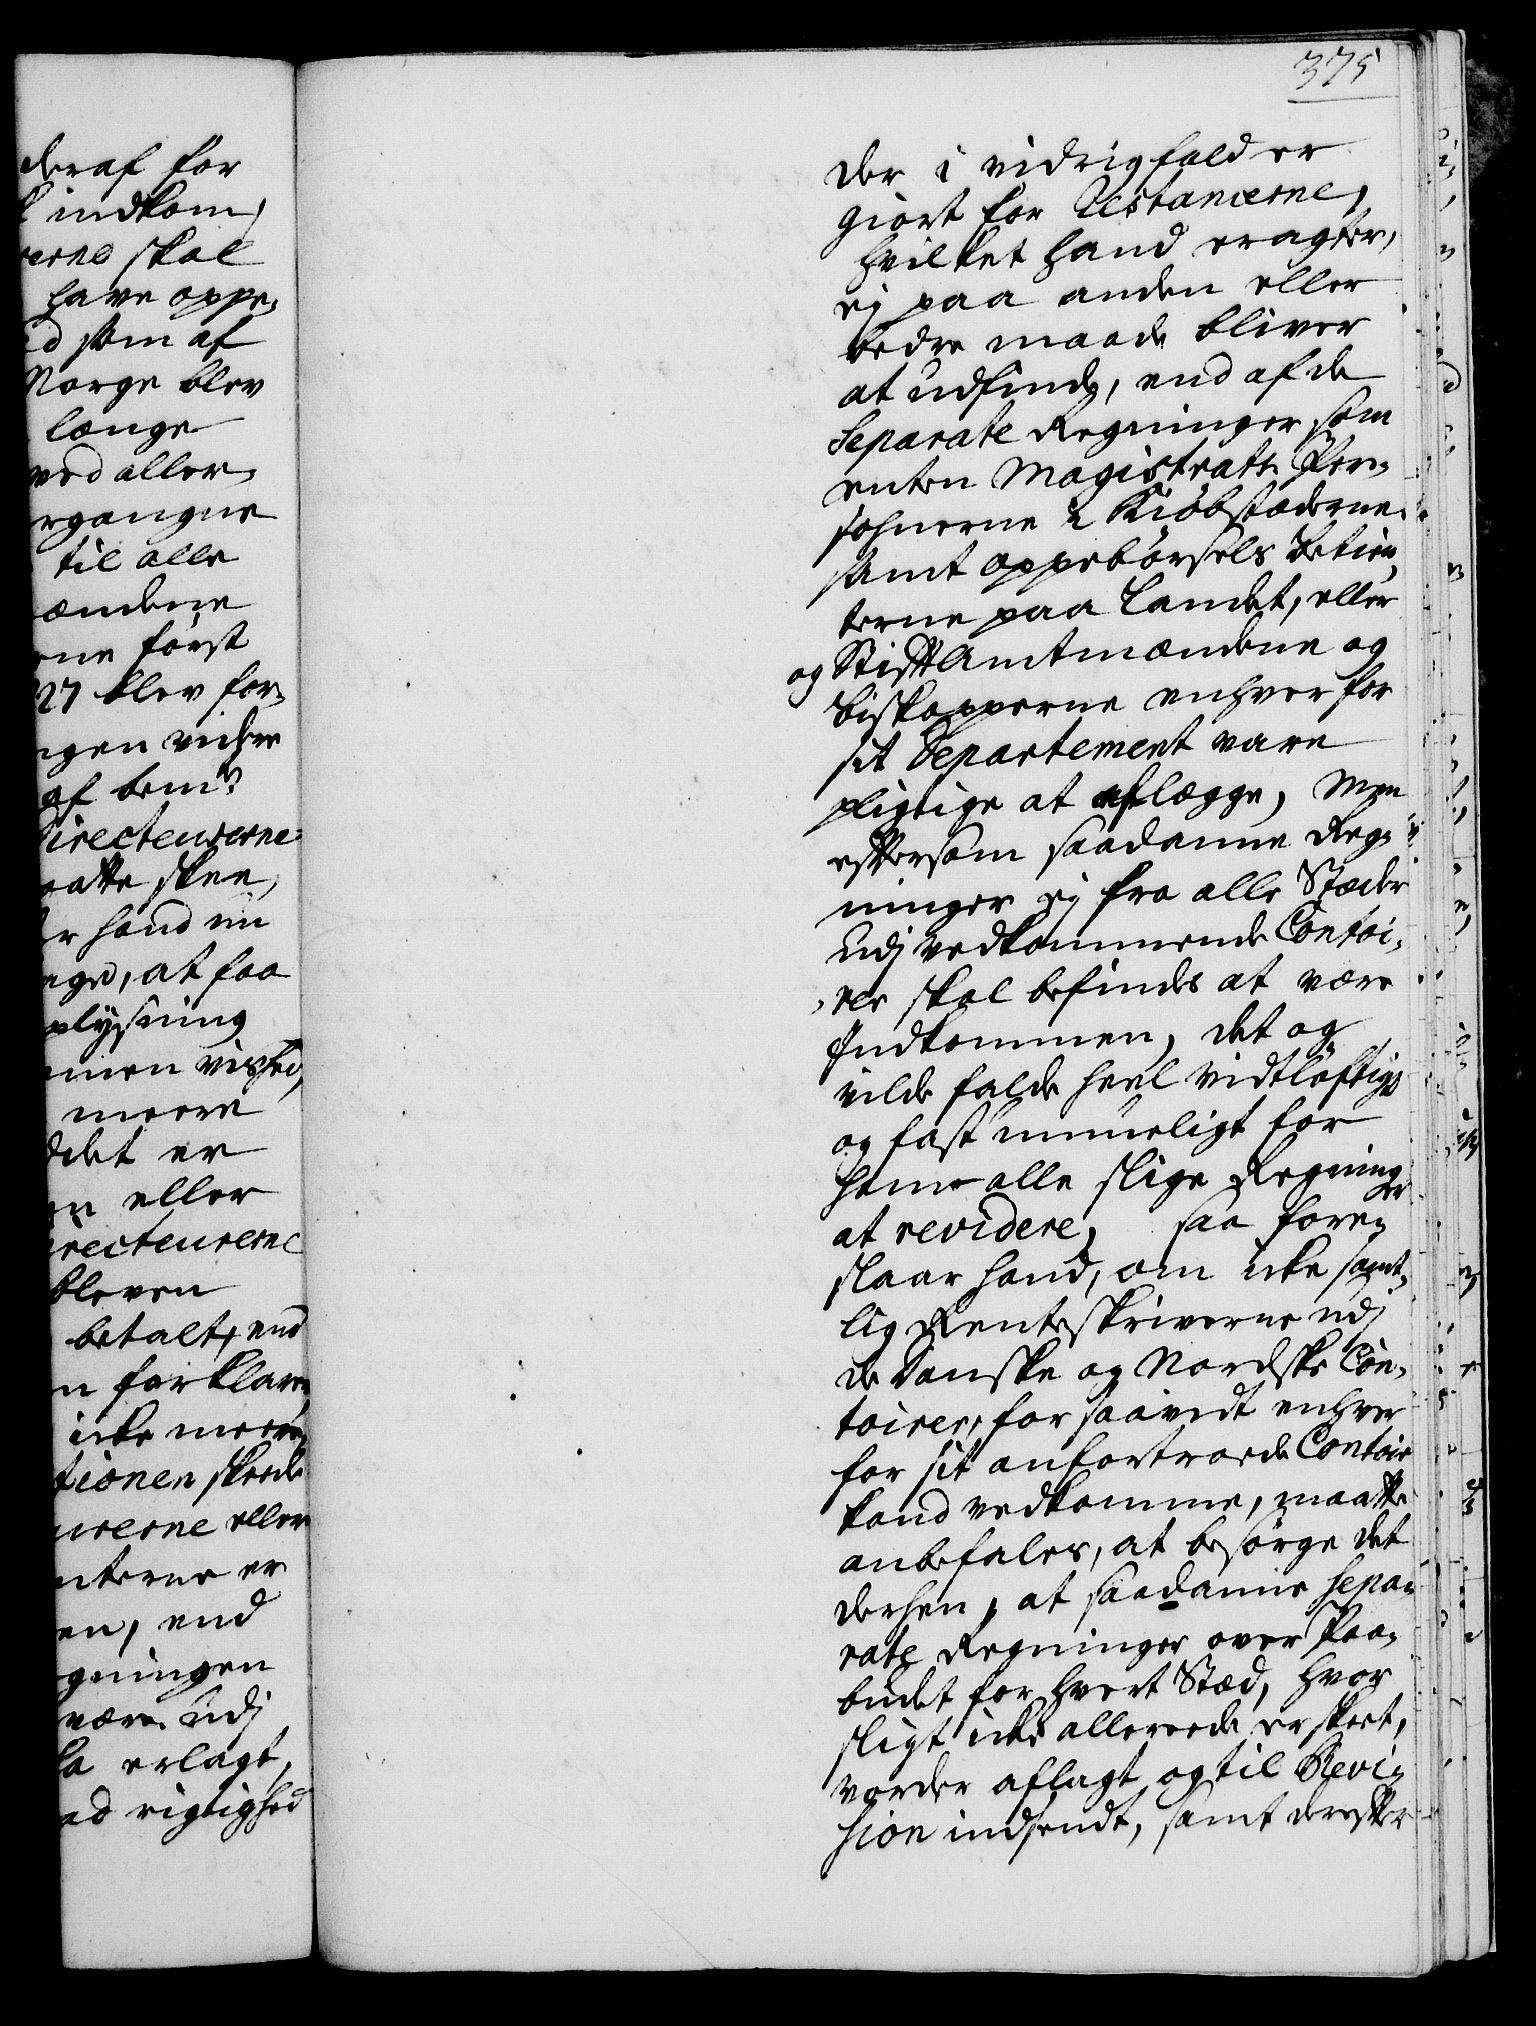 deraf for
indkom,
erne skal
have oppe¬
d som af
Norge blev
længe
ved aller¬
rgangne
til alle
ændene
ne først
27 blev for¬
gen videre
af bemte
irecteurerne
aatte skee,
r hand nu
nge, at faa
plysning
men vished,
meere
det er
n eller
irecteurerne
bleven
betalt, end
n forklare
icke meere
tionen skeede
urerne eller
nterne er
en, end
gningen
være udj
la erlagt,
ed rigtighed
375
der i vidrig fald er
giort for Restancerne,
hvilket hand eragter,
ej paa anden eller
bedre maade bliver
at udfinde, end af de
Separate Regninger som
enten Magistrats Per¬
sohnerne i Kiøbstæderne
samt oppebørsels Betien¬
terne paa Landet, eller
og Stiftamtmændene og
Biskopperne enhver for
sit Departement vare
pligtige at aflægge, Men
eftersom saadanne Reg¬
ninger ej fra alle Stæder
udj vedkommende Contoi¬
rer skal befindes at være
Indkommen, det og
vilde falde heel vidtløftigt
og fast umueligt for
ham alle slige Regninger
at revidere, saa fore¬
slaar hand, om icke samt¬
lig Renteskriverne udj
de Danske og Nordske Con¬
toirer, for saavidt enhver
for sit anfortroede Contoir
kand vedkomme, maatte
anbefales, at besørge det
derhen, at saadanne sepa¬
rate Regninger over Paa¬
budet for hvert Stæd, hvor
sligt icke allereede er skeet,
vorder aflagt og til Revi¬
sion indsendt, samt derefter